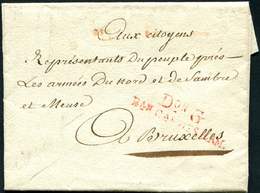 Aux citoyens
Représentants du peuple près
Les armées Du nord et de Sambre
et Meuse
Don G
A Bruxelles